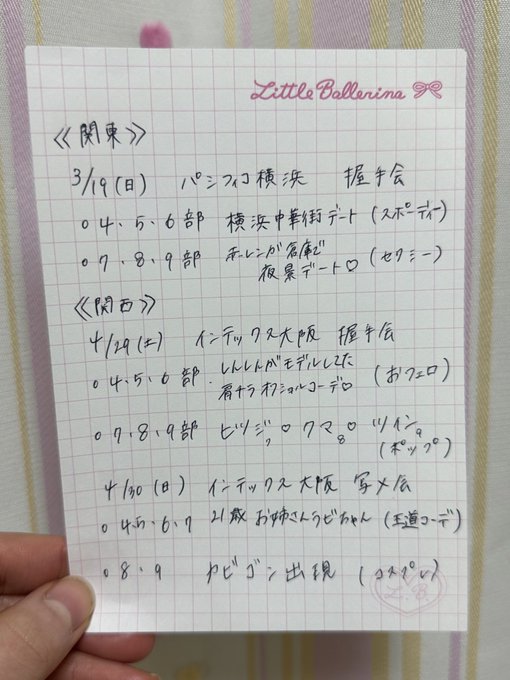 Little Ballerina
《関東》
3/19(日) パシフィコ横浜 握手会
○4、5、6部 横浜中華街デート(スポーティー)
○7、8、9部 赤レンガ倉庫で
夜景デート♡(セクシー)
《関西》
4/29(土) インテックス大阪 握手会
○4、5、6部・しんしんがモデルしてた
肩チラオフショルコーデ♡(おフェロ)
○7、8、9部 ヒツジ7♡クマ8♡ツイン9
(ポップ)
4/30(日) インテックス大阪 写メ会
○4、5、6、7 21歳お姉さんラビちゃん(王道コーデ)
○8、9 カビゴン出現(コスプレ)
L.B.